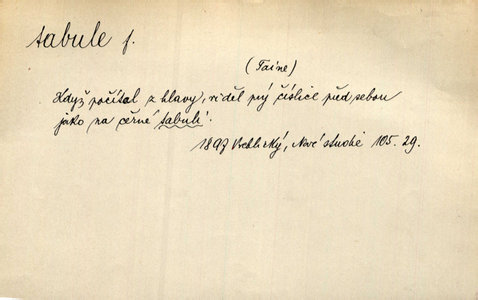 tabule f.
(Taine)
Když počítal z hlavy, viděl prý číslice před sebou
jako na černé tabuli.
1897 Vrchlický, Nové studie 105. 29.